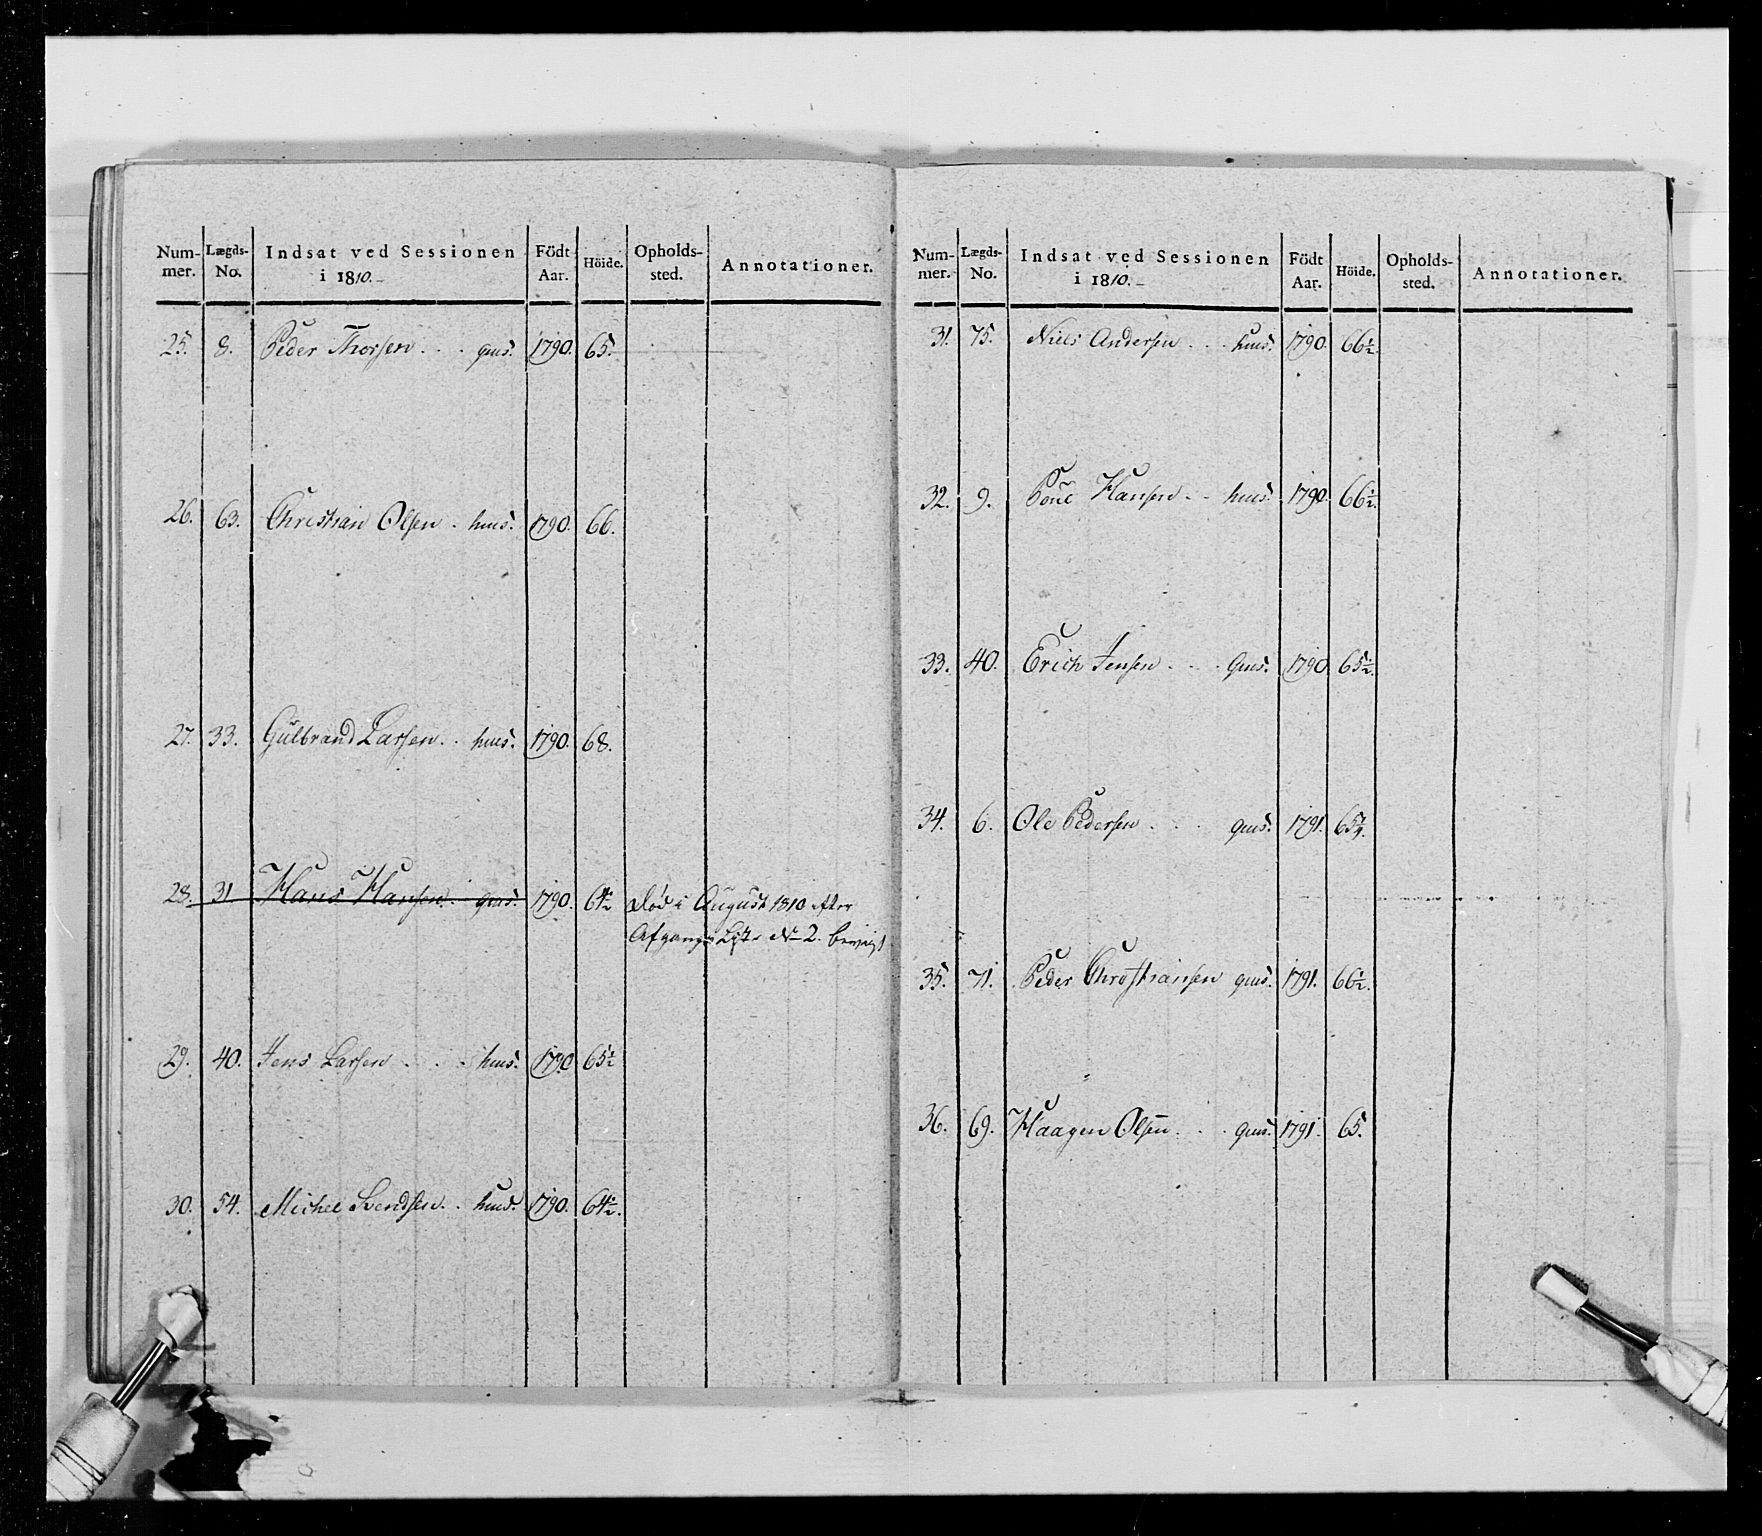 Num-mer. Lægds-No. Indsat ved Sessionen i 1810. Födt Aar. Höide. Opholds-sted. Annotationer.
25. 8. Peder Thorsen . . . gms. 1790. 65.
26. 63. Christian Olsen . hms. 1790. 66.
27. 33. Gulbrand Larsen . . hms. 1790. 68.
28. 31 Hans Hansen . . gms. 1790. 64½ Död i August 1810 efter
Afgangs No 2.
29. 40. Jens Larsen . . . hms. 1790 65½
30. 54. Michel Svendsen . . hms. 1790. 64½.
Num-mer. Lægds-No. Indsat ved Sessionen i 1810. Födt Aar. Höide. Opholds-sted. Annotationer.
31. 75. Niels Andersen . . . hms. 1790. 66½.
32. 9. Poul Hansen . . hms. 1790. 66½.
33. 40. Erich Jensen . . . Gms. 1790 65½.
34. 6. Ole Pedersen . . . gms. 1791.
35. 71. Peder Christiansen gms. 1791. 66½.
36. 69. Haagen Olsen . . . gms. 1791. 65.